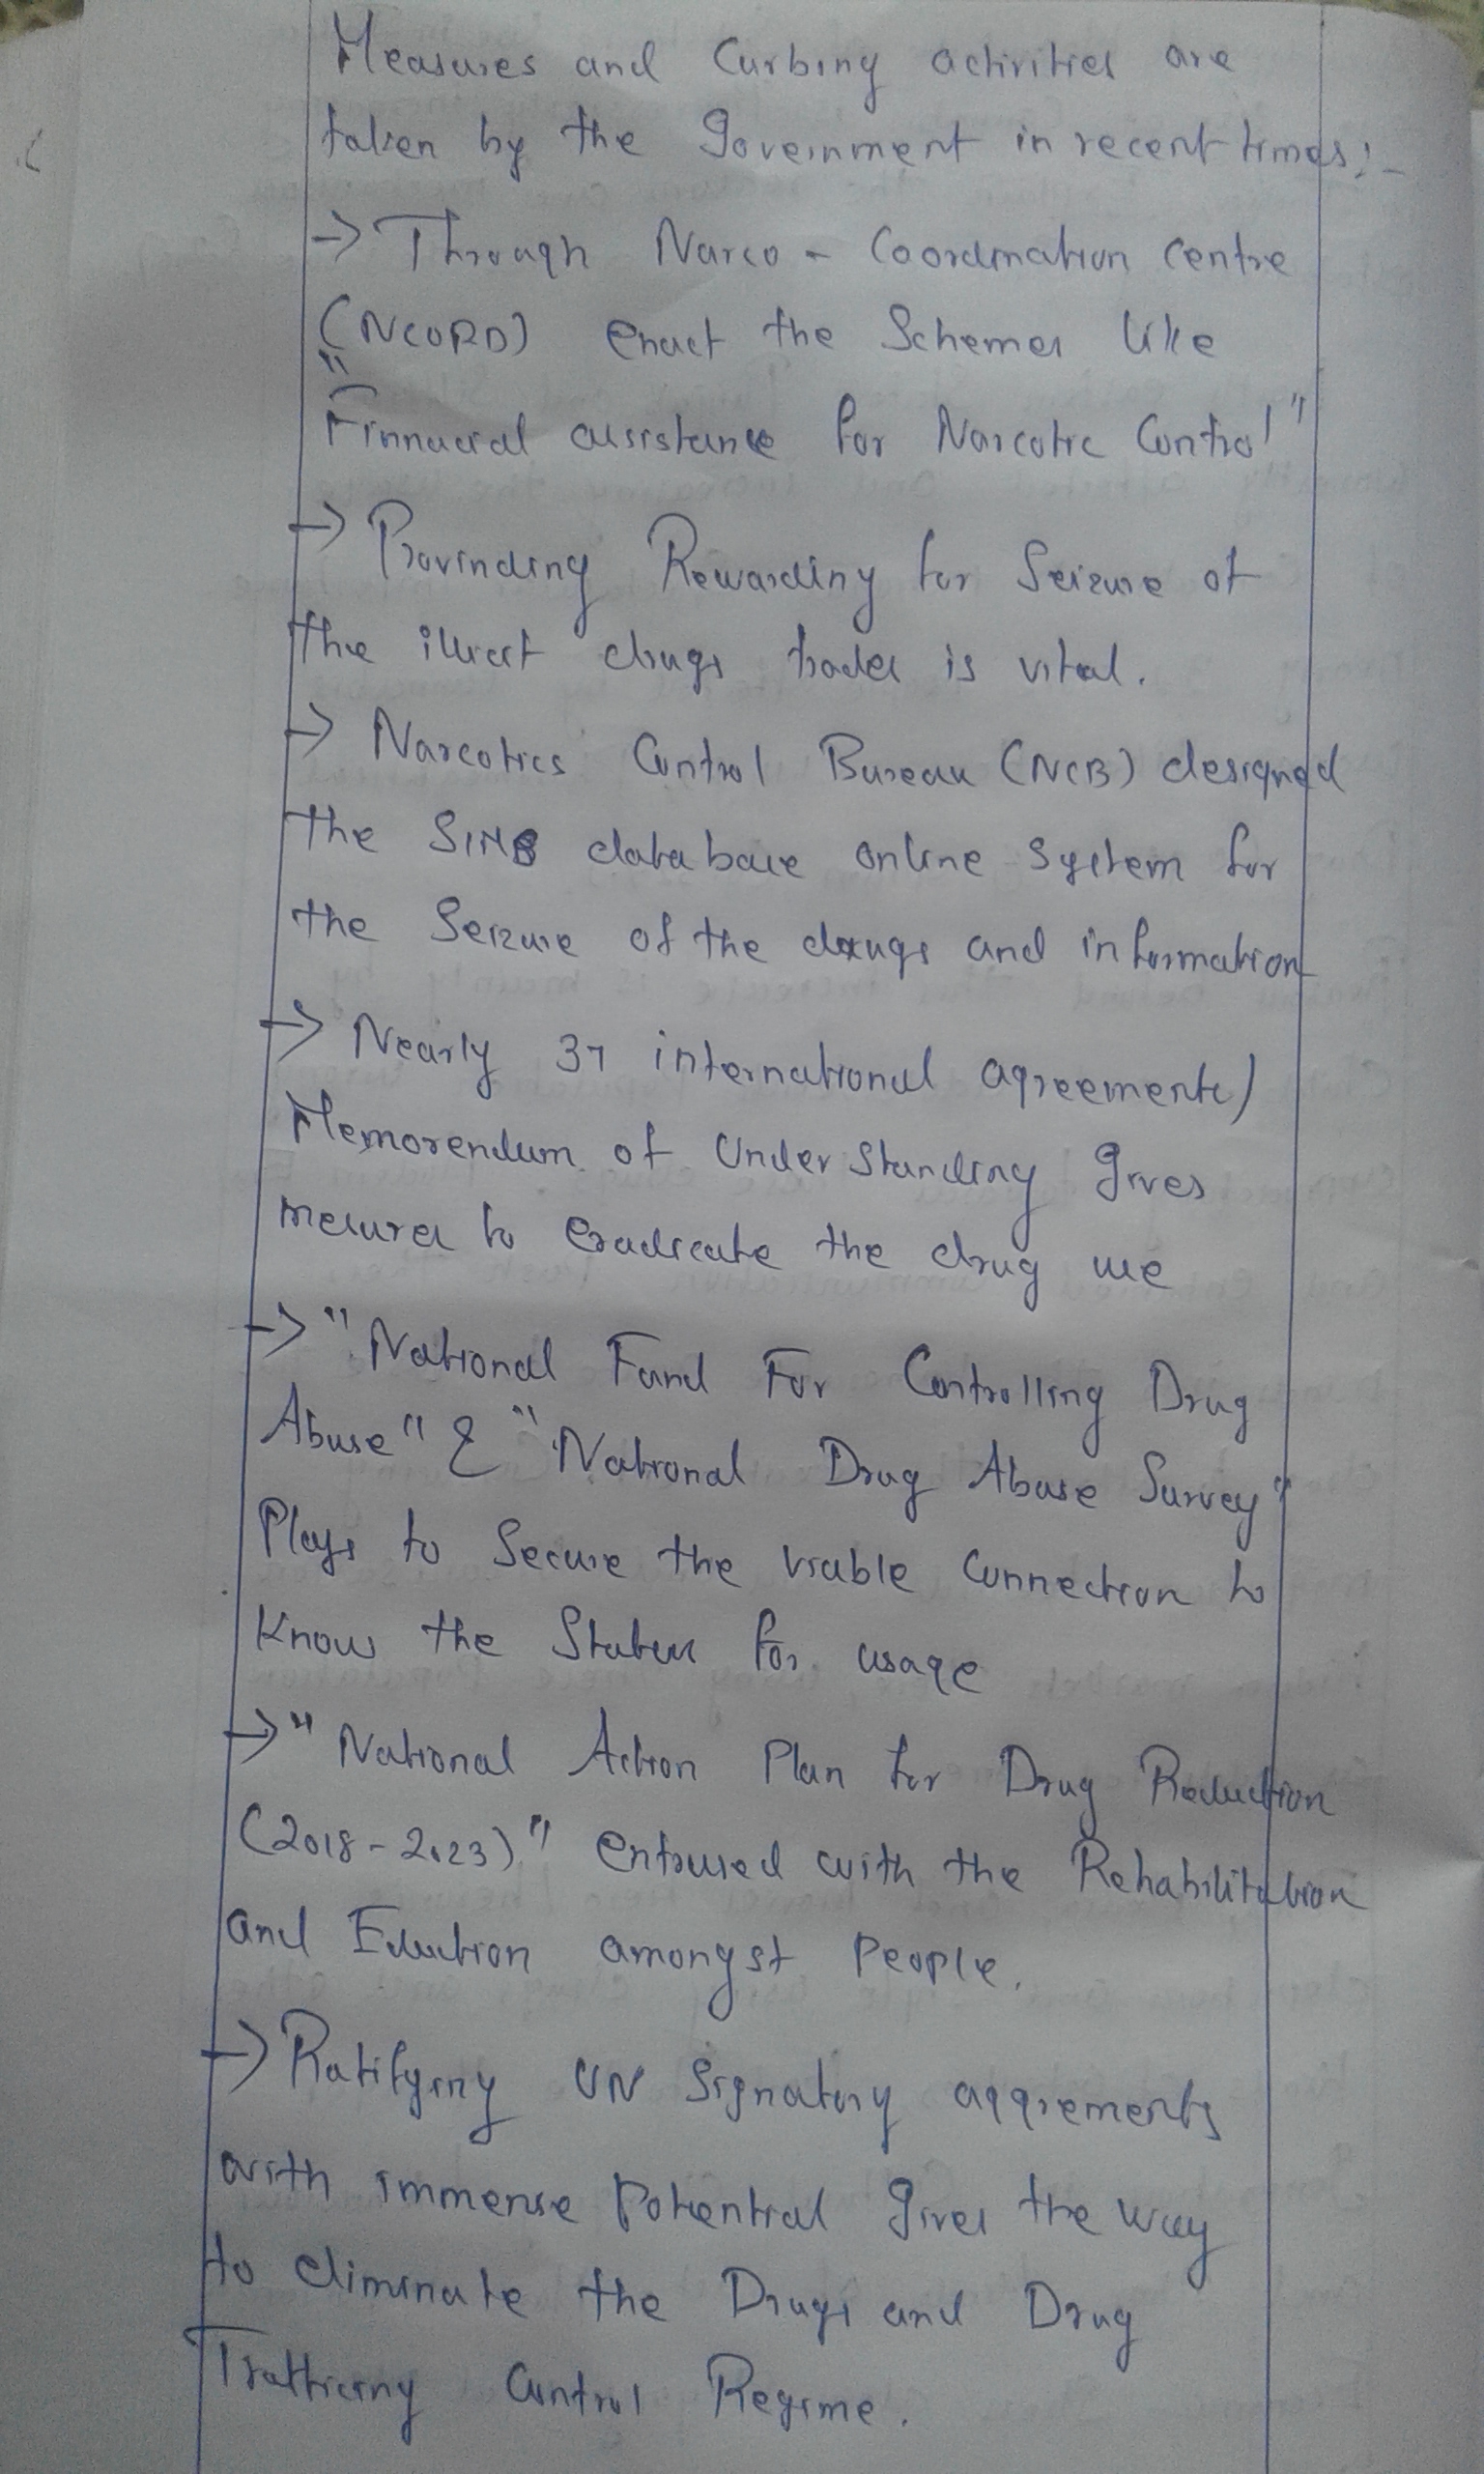 Measures and Curbing activities are
taken by the Government in recent times:-
→ Through Narco - Coordination Centre
(NCORD) enact the Schemes like
"Finnacial assistance for Narcotic Control"
→ Provinding Rewarding for Seizure of
the illicit drugs trades is vital.
→ Narcotics Control Bureau (NCB) designed
the SIMS database online system for
the Seizure of the drugs and information
→ Nearly 37 international agreements/
Memorendum of Understanding gives
mesures to eradicate the drug use
→ "National Fund For Controlling Drug
Abuse" & "National Drug Abuse Survey"
Plays to Secure the viable Connection to
Know the Status for usage
→ "National Action Plan for Drug Reduction
(2018-2023)" with the Rehabilitation
and Eduction amongst People.
→ Ratifying UN Signatory aggrements
with immense Potential gives the way
to eliminate the Drugs and Drug
Trafficing Control Regime.